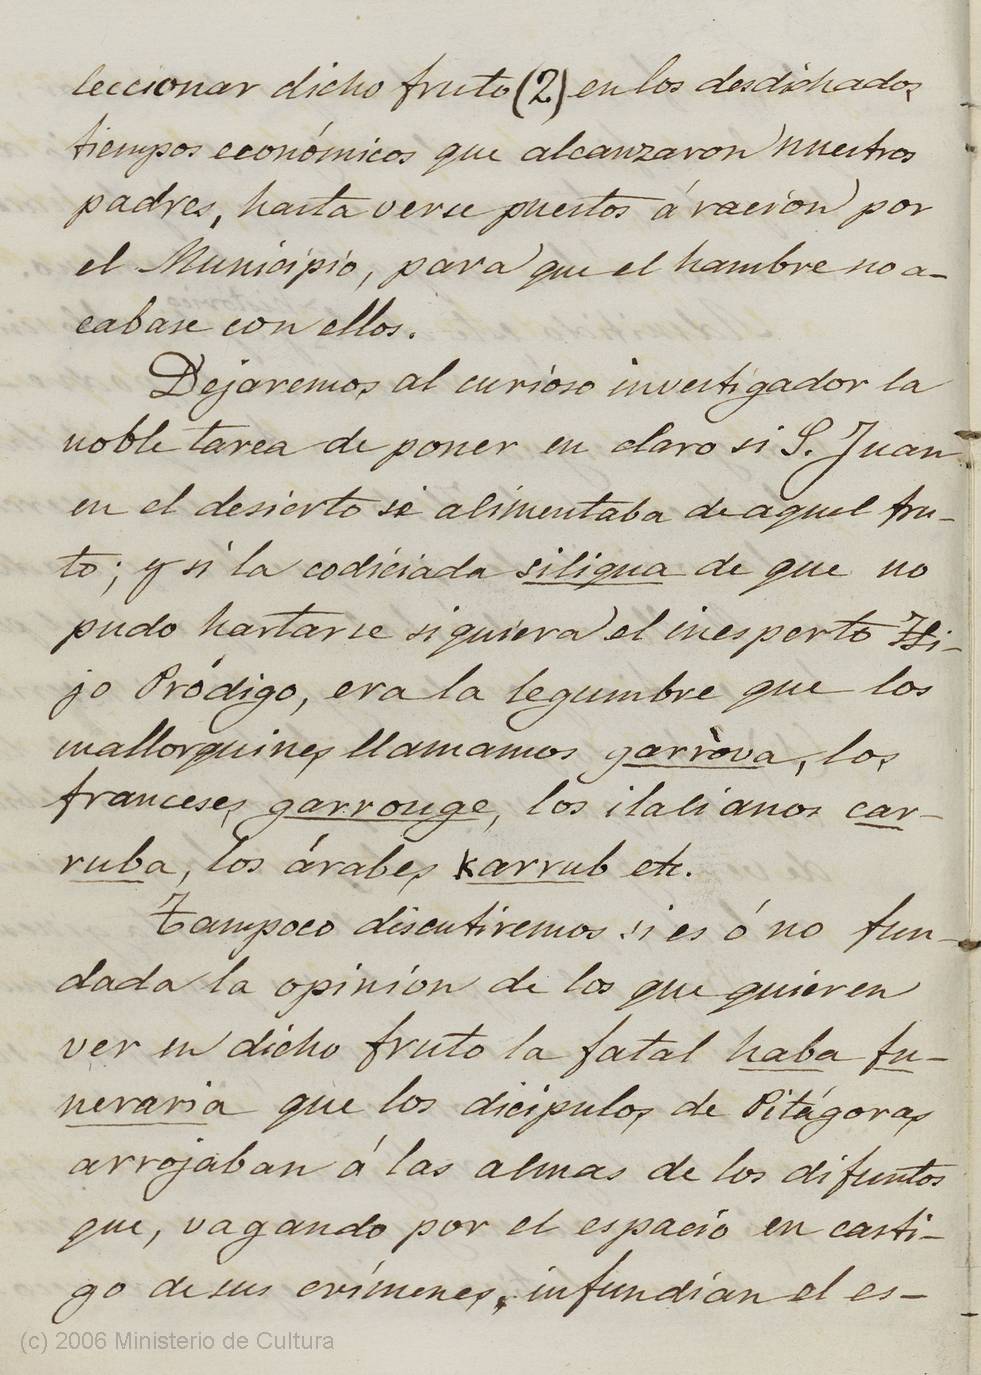 leccionar dicho fruto (2) en los desdichados
tiempos económicos que alcanzaron nuestros
padres, hasta verse puestos á racion por
el Municipio, para que el hambre no a-
cabase con ellos.
Dejaremos al curioso investigador la
noble tarea de poner en claro si S. Juan
en el desierto se alimentaba de aquel fru-
to; y si la codiciada siliqua de que no
pudo hartarse siquiera el inesperto Hi-
jo Pródigo, era la legumbre que los
mallorquines llamamos garròva, los
franceses garrouge, los italianos car-
ruba, los árabes karrub etc.
Tampoco discutiremos si es ó no fun-
dada la opinion de los que quieren
ver en dicho fruto la fatal haba fu-
neraria que los dicipulos de Pitágoras
arrojaban á las almas de los difuntos
que, vagando por el espacio en casti-
go de sus crímenes, infundian el es-
(c) 2006 Ministerio de Cultura